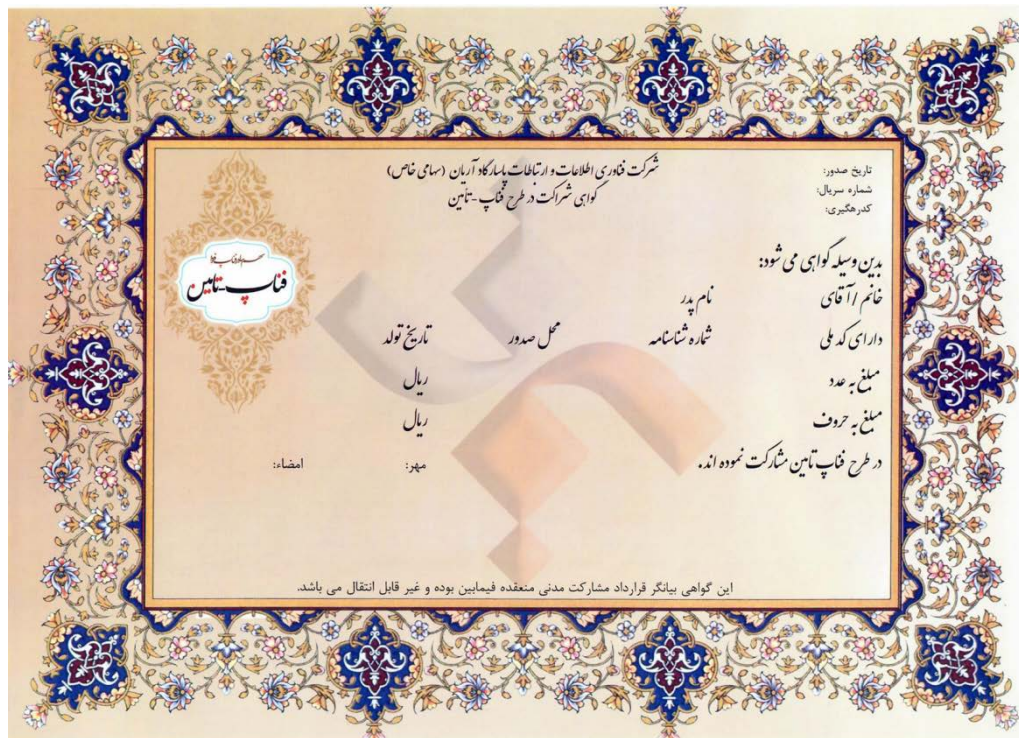 شرکت فناوری اطلاعات و ارتباطات پاسارگاد آریان (سهامی خاص)
گواهی شراکت در طرح فناپ - تأمین
تاریخ صدور:
شماره سریال:
کدرهگیری:
فناپ-تامین
بدین وسیله گواهی می شود:
خانم / آقای نام پدر
دارای کد ملی شماره شناسنامه محل صدور تاریخ تولد
مبلغ به عدد ریال
مبلغ به حروف ریال
در طرح فناپ تامین مشارکت نموده اند.
مهر: امضاء:
این گواهی بیانگر قرارداد مشارکت مدنی منعقده فیمابین بوده و غیر قابل انتقال می باشد.